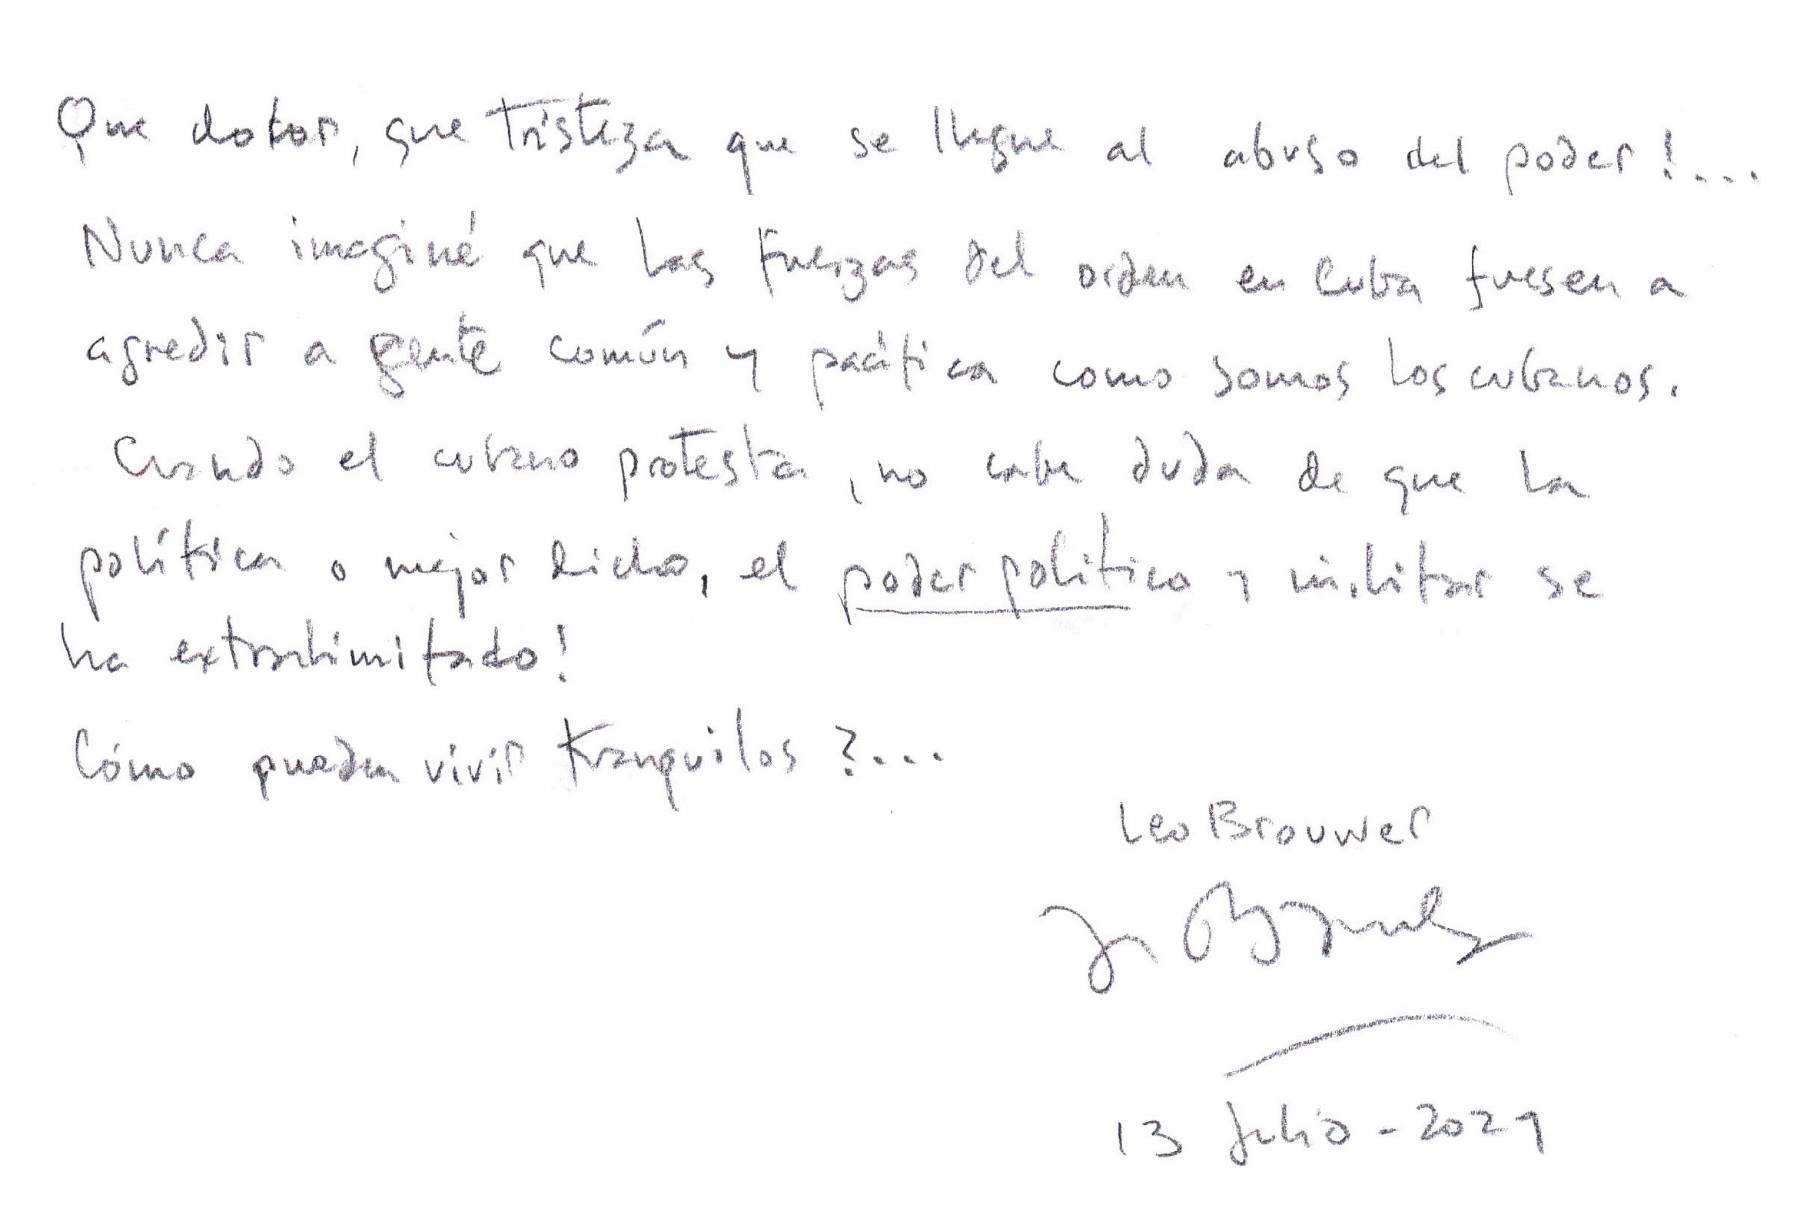 Que dolor, que tristeza que se llegue al abuso del poder!...
Nunca imaginé que las fuerzas del orden en Cuba fuesen a
agredir a gente común y pacífica como somos los cubanos.
Cuando el cubano protesta, no cabe duda de que la
política o mejor dicho, el poder político y militar se
ha extralimitado!
Cómo pueden vivir tranquilos?...
Leo Brouwer
13 Julio - 2021